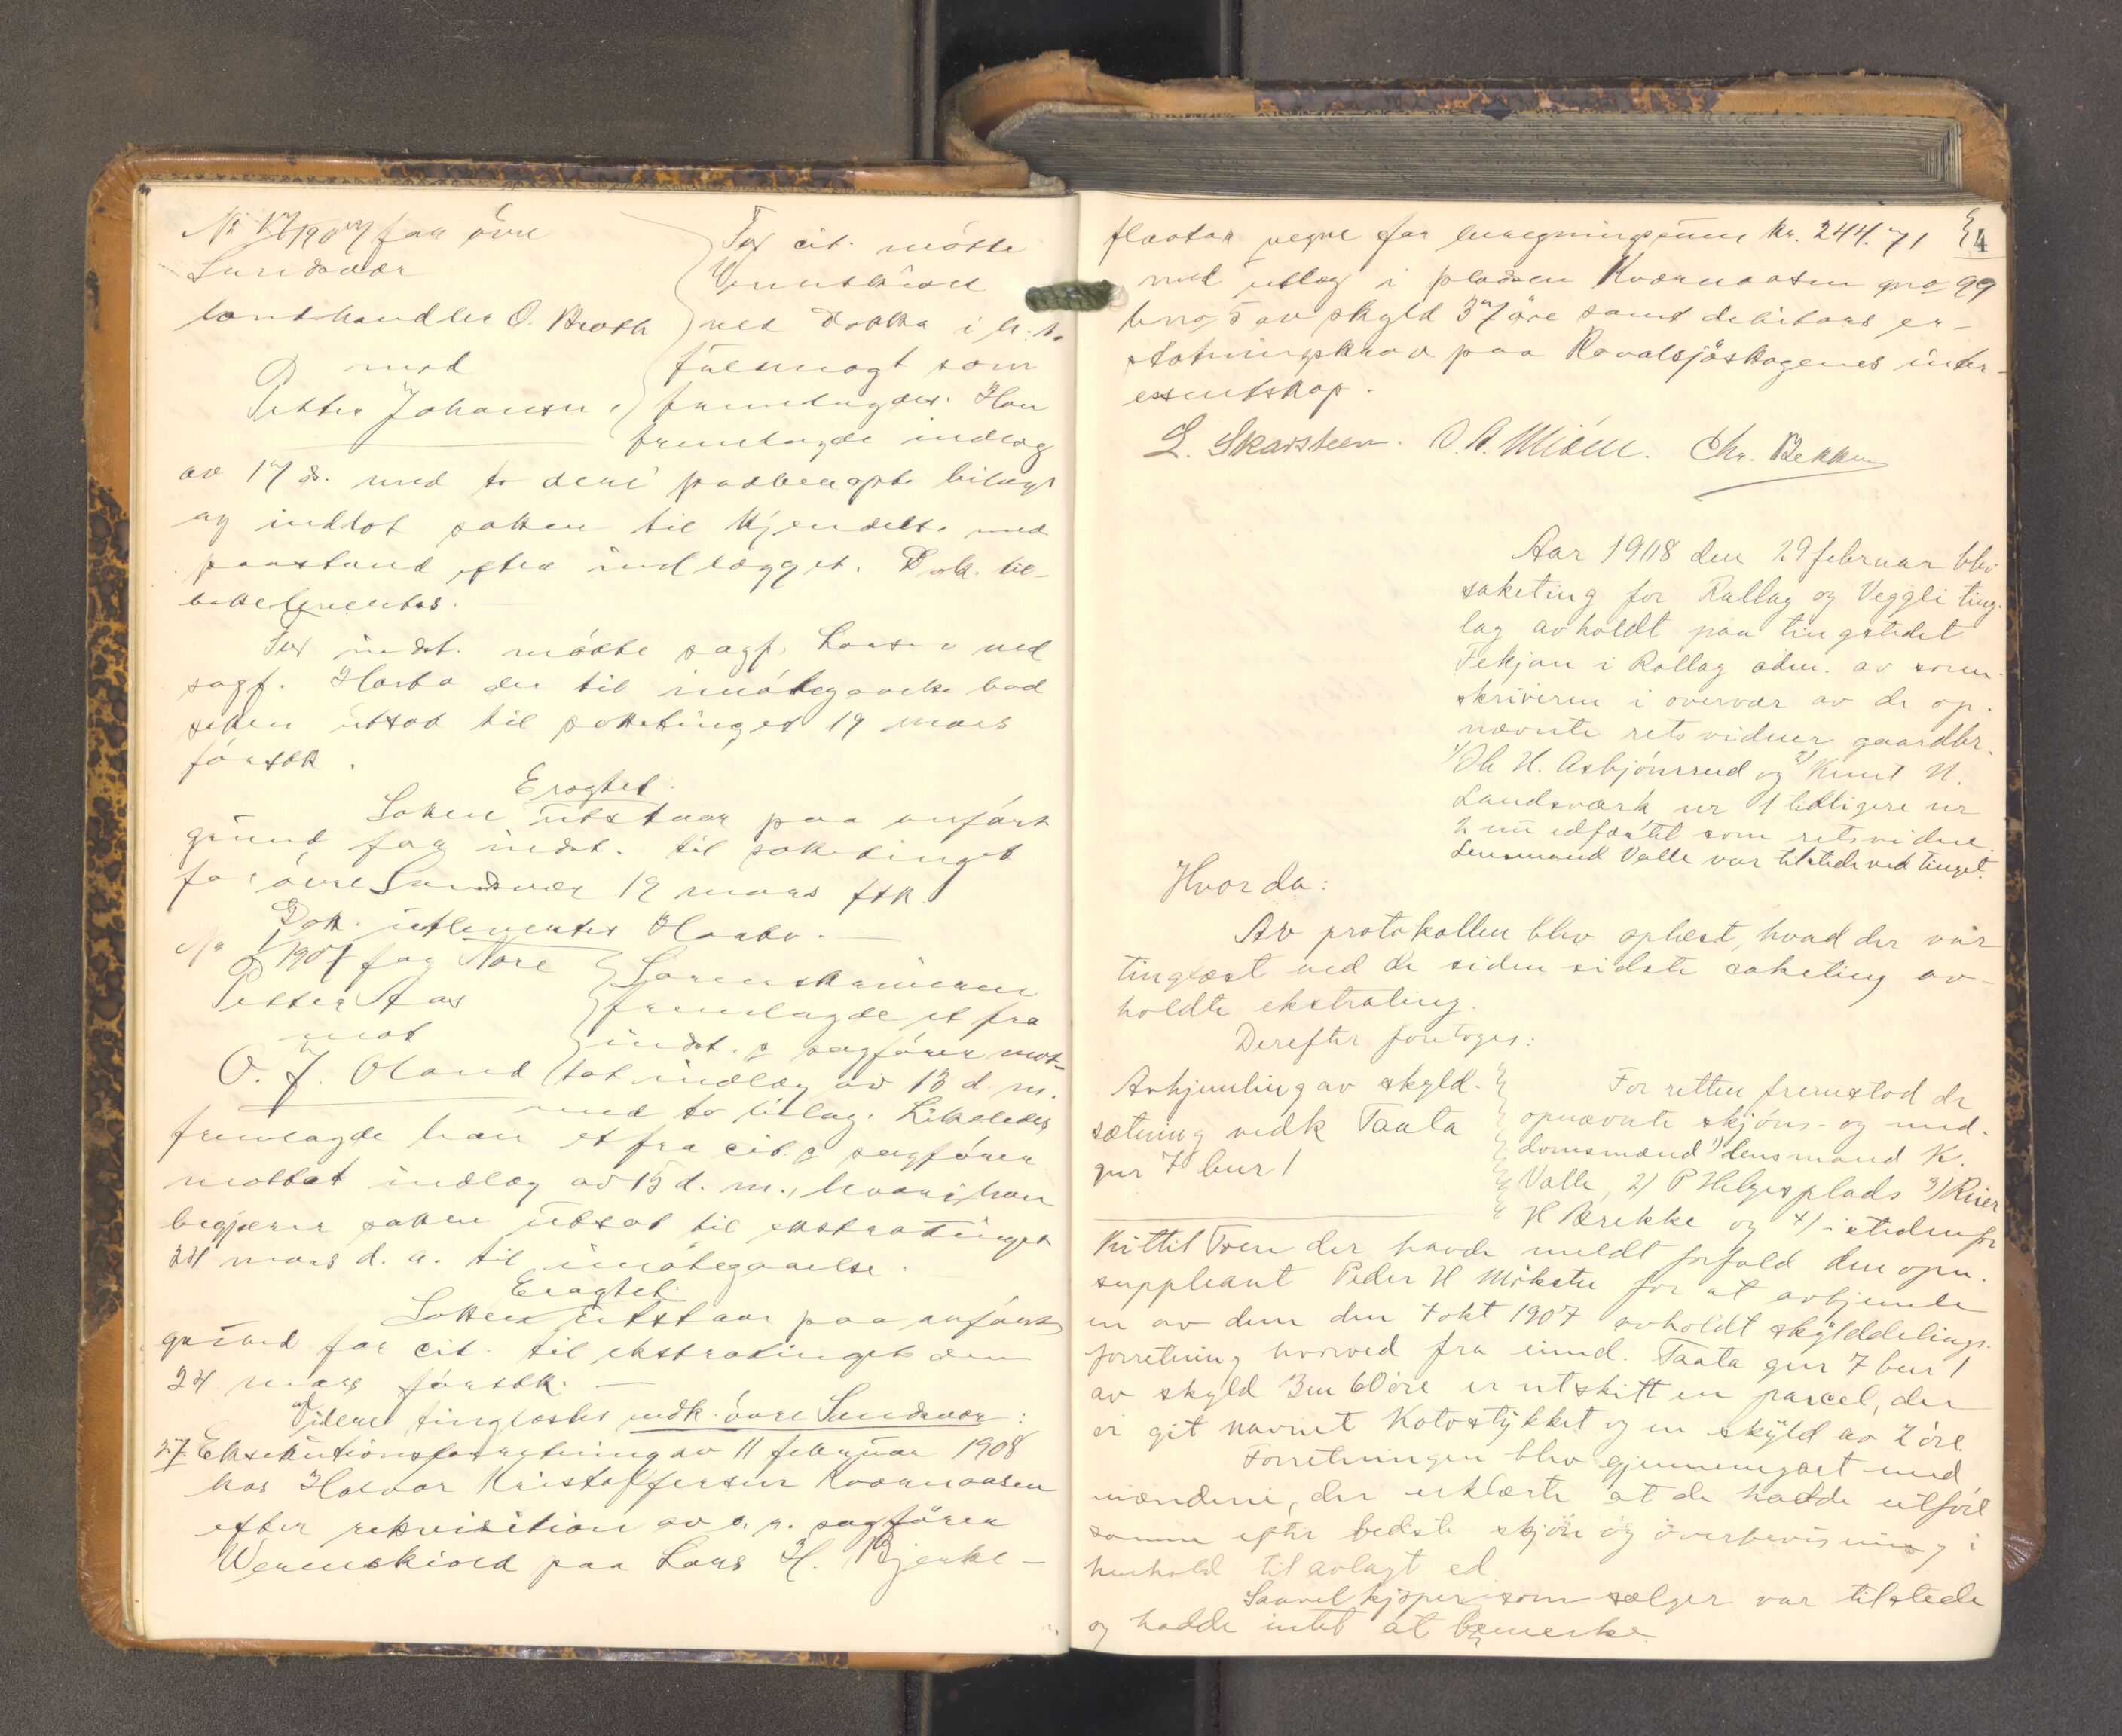 for øvre
Sandsvær
landhandler O. Braath
mod
Petter Johansen
For cit. møtte
Wennskiold
ved Dokka i h.t.
fuldmagt som
fremlagdes. Han
fremlagde indlæg
av 17 ds. med to deri paaberopte bilag
og indlot saken til kjendelse med
paastand efter indlægget. Dok. til-
bakeleveredes.
For indst. møtte sagf. Larsen ved
sagf. Haabo der til imøtegaaelse bad
saken utsat til saketinget 19 mars
førstk.
Eragtet:
Saken utstaar paa anført
grund for indst. til saketinget
for øvre Sandsvær 19 mars fstk.
Dok. utleveredes Haabo.
Nr 1/1907 for Nore
Petter Aas
mot
O. J. Oland
Sorenskriveren
fremlagde et fra
indst.s sagfører mot-
tat indlæg av 13 d. m.
med to bilag. Likeledes
fremlagde han et fra cit.s sagfører
mottat indlæg av 15 d. m., hvori han
begjærer saken utsat til ekstratinget
24 mars d. a. til imøtegaaelse.
Eragtet:
Saken utstaar paa anført
grund for cit. til ekstratinget den
24 mars førstk.
Videre tinglæstes vedk. øvre Sandsvær:
27. Eksekutionsforretning av 11 februar 1908
hos Halvor Kristoffersen Kværnaasen
efter rekvisition av o. r. sagfører
Werenskiold paa Lars H. Bjerke-
fløatas vegne for beregningssum kr. 244.71
4
med utlæg i pladsen Kværnaasen gno 99
bno 5 av skyld 37 øre samt debitors er-
statningskrav paa Ravalsjøskogenes inter-
essentskap.
L. Skarsteen. O. A. Moen. Chr. Bekken
Aar 1908 den 29 februar blev
saketing for Rollag og Veggli ting-
lag avholdt paa tingstedet
Tekjan i Rollag adm. av soren-
skriveren i overvær av de op-
nævnte retsvidner, gaardbr.
1) Ole H. Asbjørnrud og 2) Knut N.
Landsverk nr 1 tidligere nr
2 nu edfæstet som retsvidne.
Lensmand Valle var tilstede ved tinget.
Hvorda:
Av protokollen blev oplæst, hvad der var
tinglæst ved de siden sidste saketing av-
holdte ekstrating.
Derefter foretoges:
Avhjemling av skyld-
sætning vedk Taata
gnr 7 bnr 1
For retten fremstod de
opnævnte skjøns- og med-
domsmænd 1) lensmand K.
Valle, 2) P Helgesplads 3) Reier
H Brekke og 4) istedenfor
Kittil Toen der havde meldt forfald den opn.
suppleant Peder H Mykstu for at avhjemle
en av dem den 7 okt 1907 avholdt skylddelings-
forretning hvorved fra eiend. Taata gnr 7 bnr 1
av skyld 3 m 60 øre er utskilt en parcel, der
er git navnet Kotostykket og en skyld av 2 øre.
Forretningen blev gjennemgaat med
mændene, der erklærte at de hadde utført
samme efter bedste skjøn og overbevisning i
henhold til avlagt ed.
Saavel kjøper som sælger var tilstede
og hadde intet at bemerke.